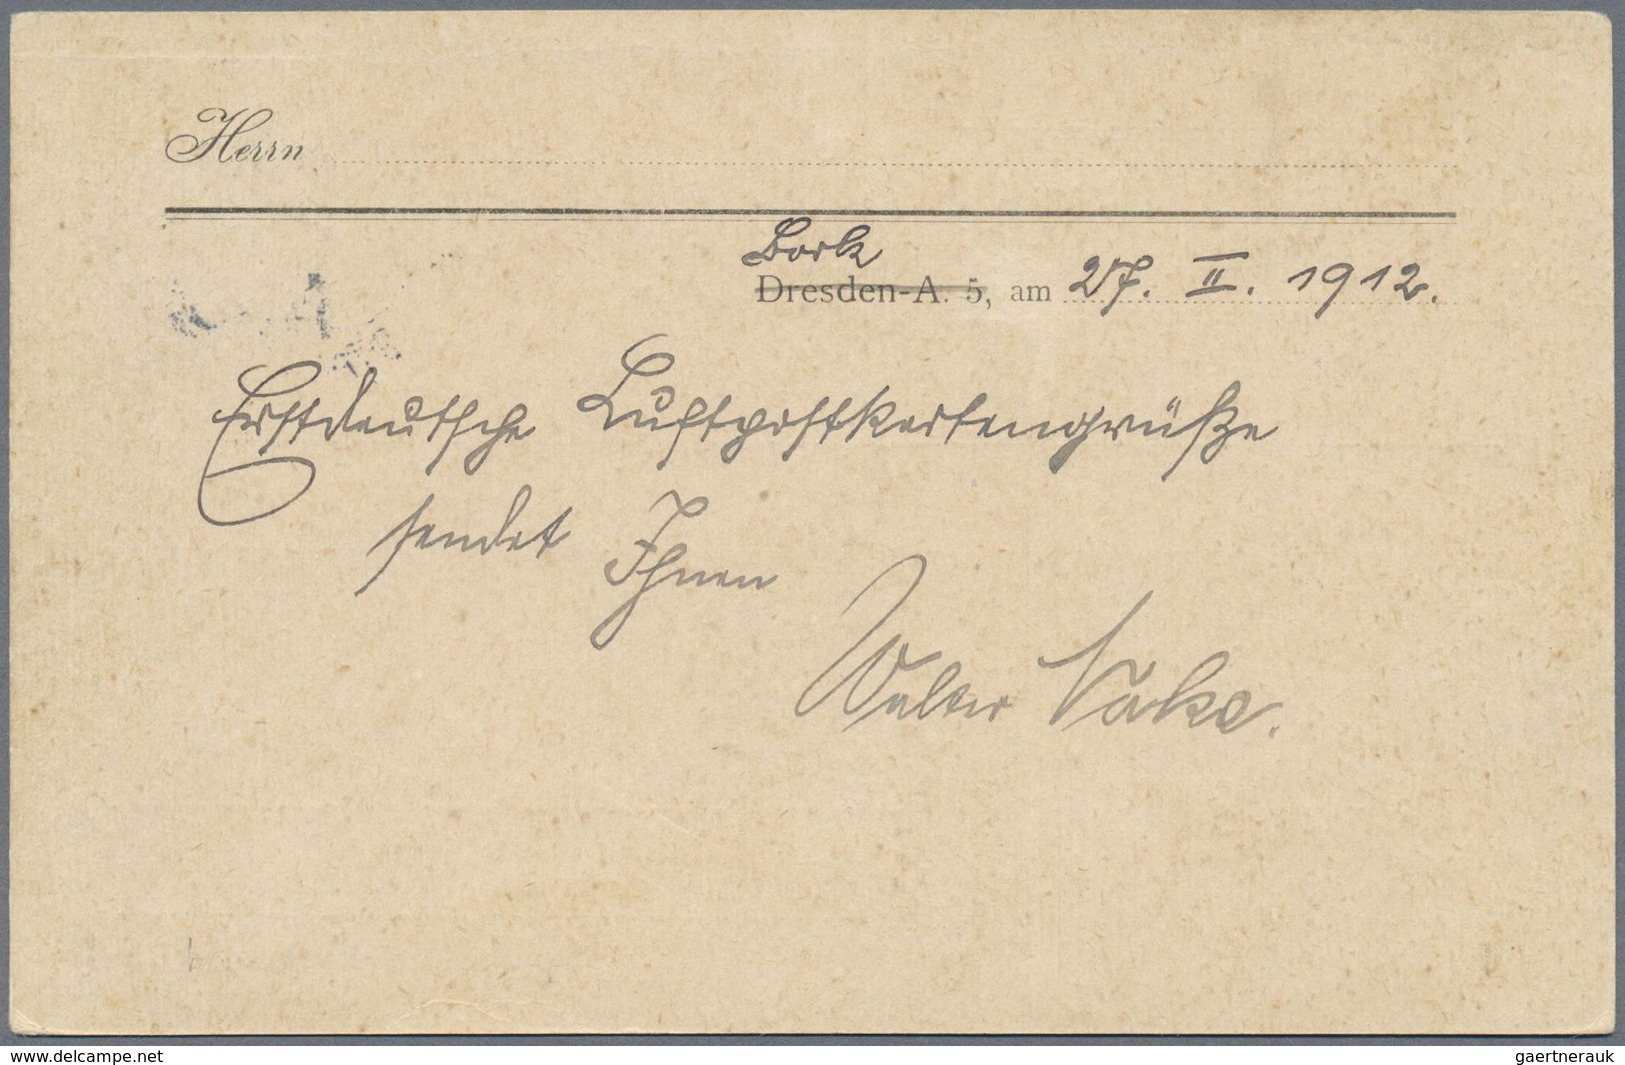 Herrn
Bork
Dresden-A. 5, am 27. II. 1912.
Erstdeutsche Luftpostkartengrüße
sendet Ihnen
Walter
delcampe.net
gaertnerauk